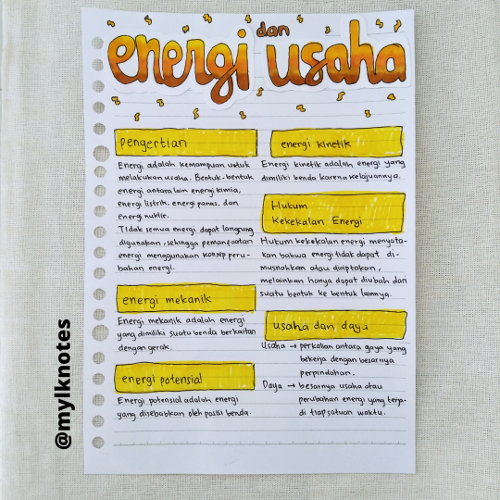 energi dan usaha
pengertian
Energi adalah kemampuan untuk
melakukan usaha. Bentuk-bentuk
energi antara lain energi kimia,
energi listrik, energi panas, dan
energi nuklir.
Tidak semua energi dapat langsung
digunakan, sehingga pemanfaatan
energi menggunakan konsep peru-
bahan energi.
energi mekanik
Energi mekanik adalah energi
yang dimiliki suatu benda berkaitan
dengan gerak.
energi potensial
Energi potensial adalah energi
yang disebabkan oleh posisi benda.
energi kinetik
Energi kinetik adalah energi yang
dimiliki benda karena kelajuannya.
Hukum
Kekekalan Energi
Hukum kekekalan energi menyata-
kan bahwa energi tidak dapat di-
musnahkan atau diciptakan,
melainkan hanya dapat diubah dari
suatu bentuk ke bentuk lainnya.
usaha dan daya
Usaha → perkalian antara gaya yang
bekerja dengan besarnya
perpindahan.
Daya → besarnya usaha atau
perubahan energi yang terja-
di tiap satuan waktu.
@mylknotes